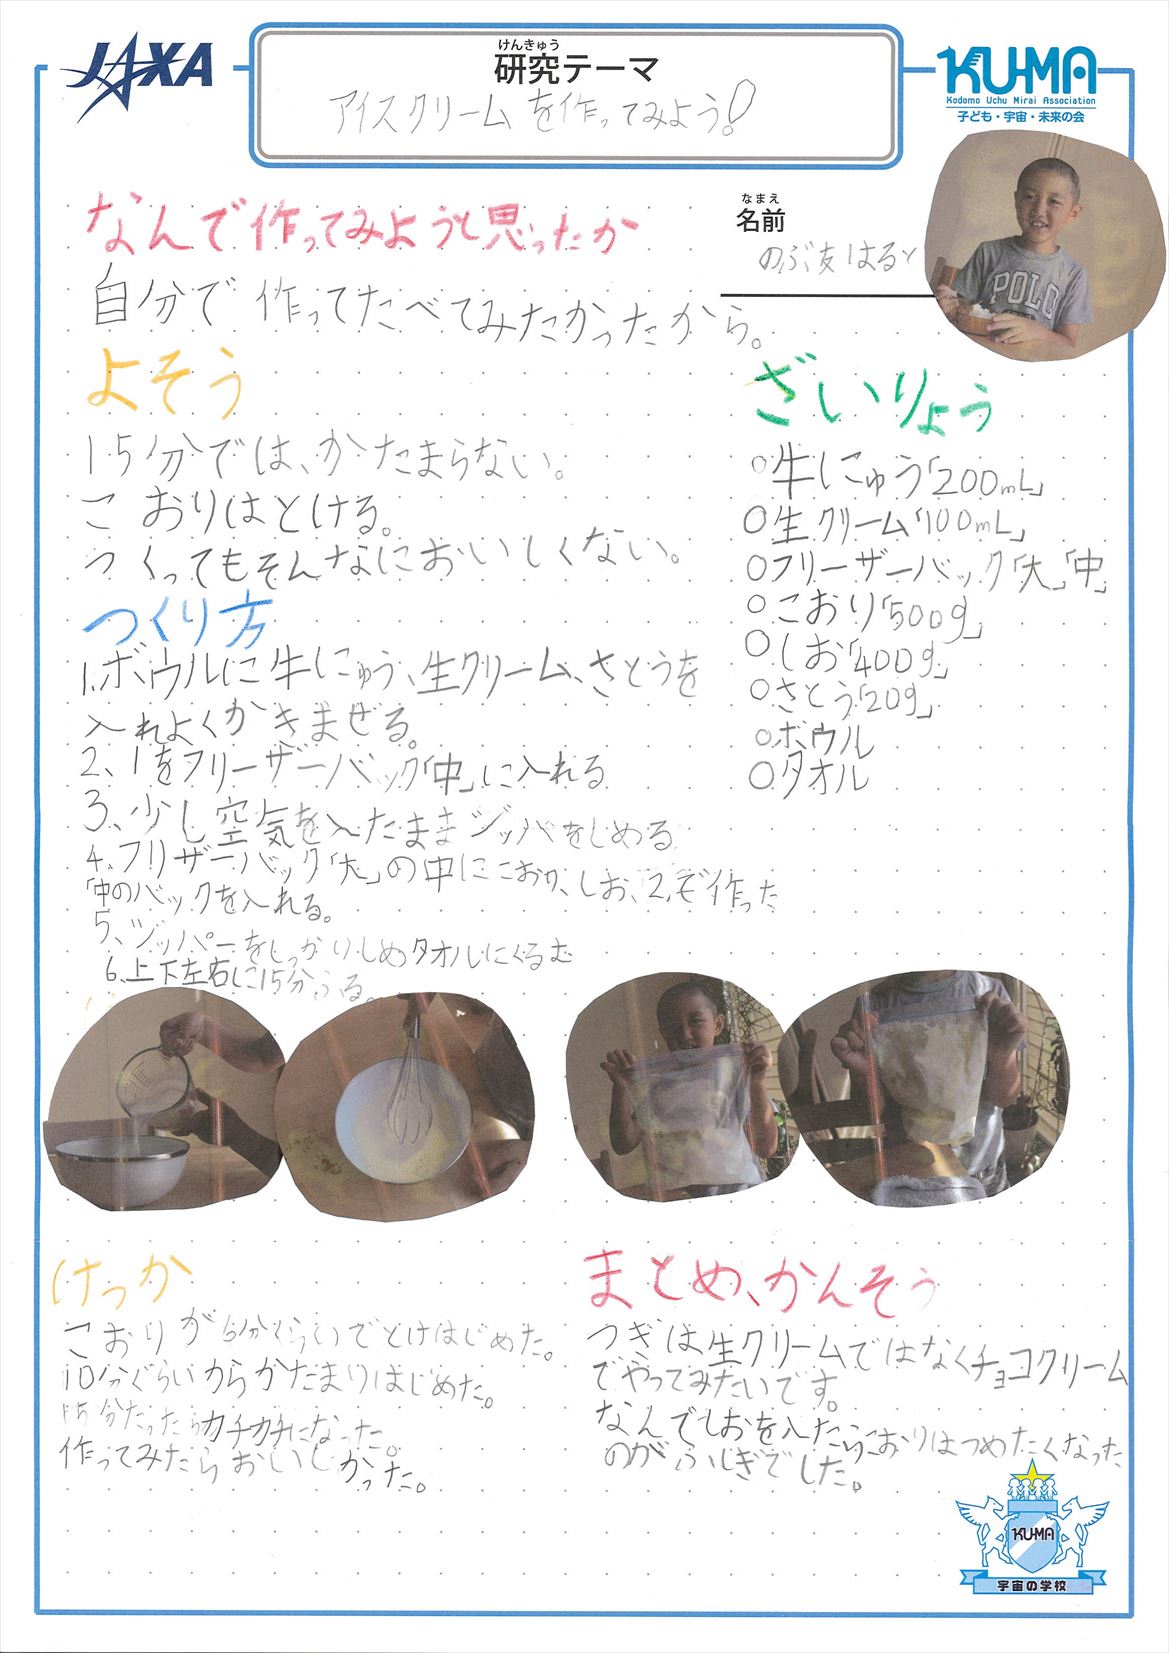 JAXA
けんきゅう
研究テーマ
アイスクリームを作ってみよう!
KU-MA
Kodomo Uchu Mirai Association
子ども・宇宙・未来の会
なまえ
名前
のぶ友 はると
POLO
なんで作ってみようと思ったか
自分で作ってたべてみたかったから。
よそう
15分では、かたまらない。
こおりはとける。
つくってもそんなにおいしくない。
ざいりょう
○牛にゅう「200mL」
○生クリーム「100mL」
○フリーザーバック「大」「中」
○こおり「500g」
○しお「400g」
○さとう「20g」
○ボウル
○タオル
つくり方
1.ボウルに牛にゅう、生クリーム、さとうを
入れよくかきまぜる。
2、1をフリーザーバック「中」に入れる
3、少し空気を入たままジッパをしめる
4.フリザーバック「大」の中にこおり、しお、2、で作った
「中のバックを入れる。
5、ジッパーをしっかりしめタオルにくるむ
6、上下左右に15分ふる。
けっか
こおりが6分くらいでとけはじめた。
10分ぐらいからかたまりはじめた。
15分たったらカチカチになった。
作ってみたらおいしかった。
まとめ、かんそう
つぎは生クリームではなくチョコクリーム
でやってみたいです。
なんでしおを入たらこおりはつめたくなった
のがふしぎでした。
KU-MA
宇宙の学校